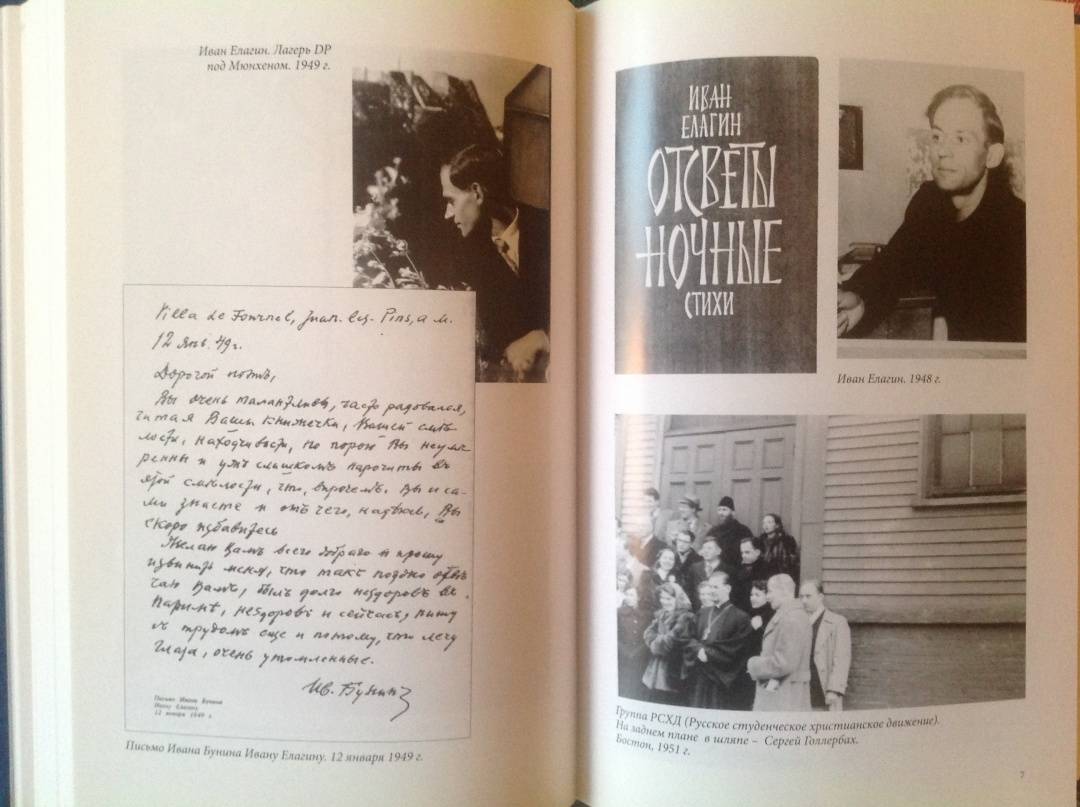 Иван Елагин. Лагерь DP
под Мюнхеном. 1949 г.
Villa de Fournel, Juan-les-Pins, a. m.
12 янв. 49 г.
Дорогой поэтъ,
Вы очень талантливы, часто радовался,
читая Вашы книжечки, Вашей смѣ-
лости, находчивости, но порой Вы неумѣ-
ренны и ужъ слишкомъ нарочиты въ
этой смѣлости, что, впрочемъ, Вы и са-
ми знаете и отъ чего, надѣюсь, Вы
скоро избавитесь
Желаю Вамъ всего добраго и прошу
извинить меня, что такъ поздно отвѣ-
чаю Вамъ, былъ долго нездоровъ въ
Парижѣ, нездоровъ и сейчасъ, пишу
съ трудомъ еще и потому, что лечу
глаза, очень утомленные.
Ив. Бунинъ
Письмо Ивана Бунина
Ивану Елагину
12 января 1949 г.
Письмо Ивана Бунина Ивану Елагину. 12 января 1949 г.
ИВАН
ЕЛАГИН
ОТСВЕТЫ
НОЧНЫЕ
СТИХИ
Иван Елагин. 1948 г.
Группа РСХД (Русское студенческое христианское движение).
На заднем плане в шляпе – Сергей Голлербах.
Бостон, 1951 г.
7